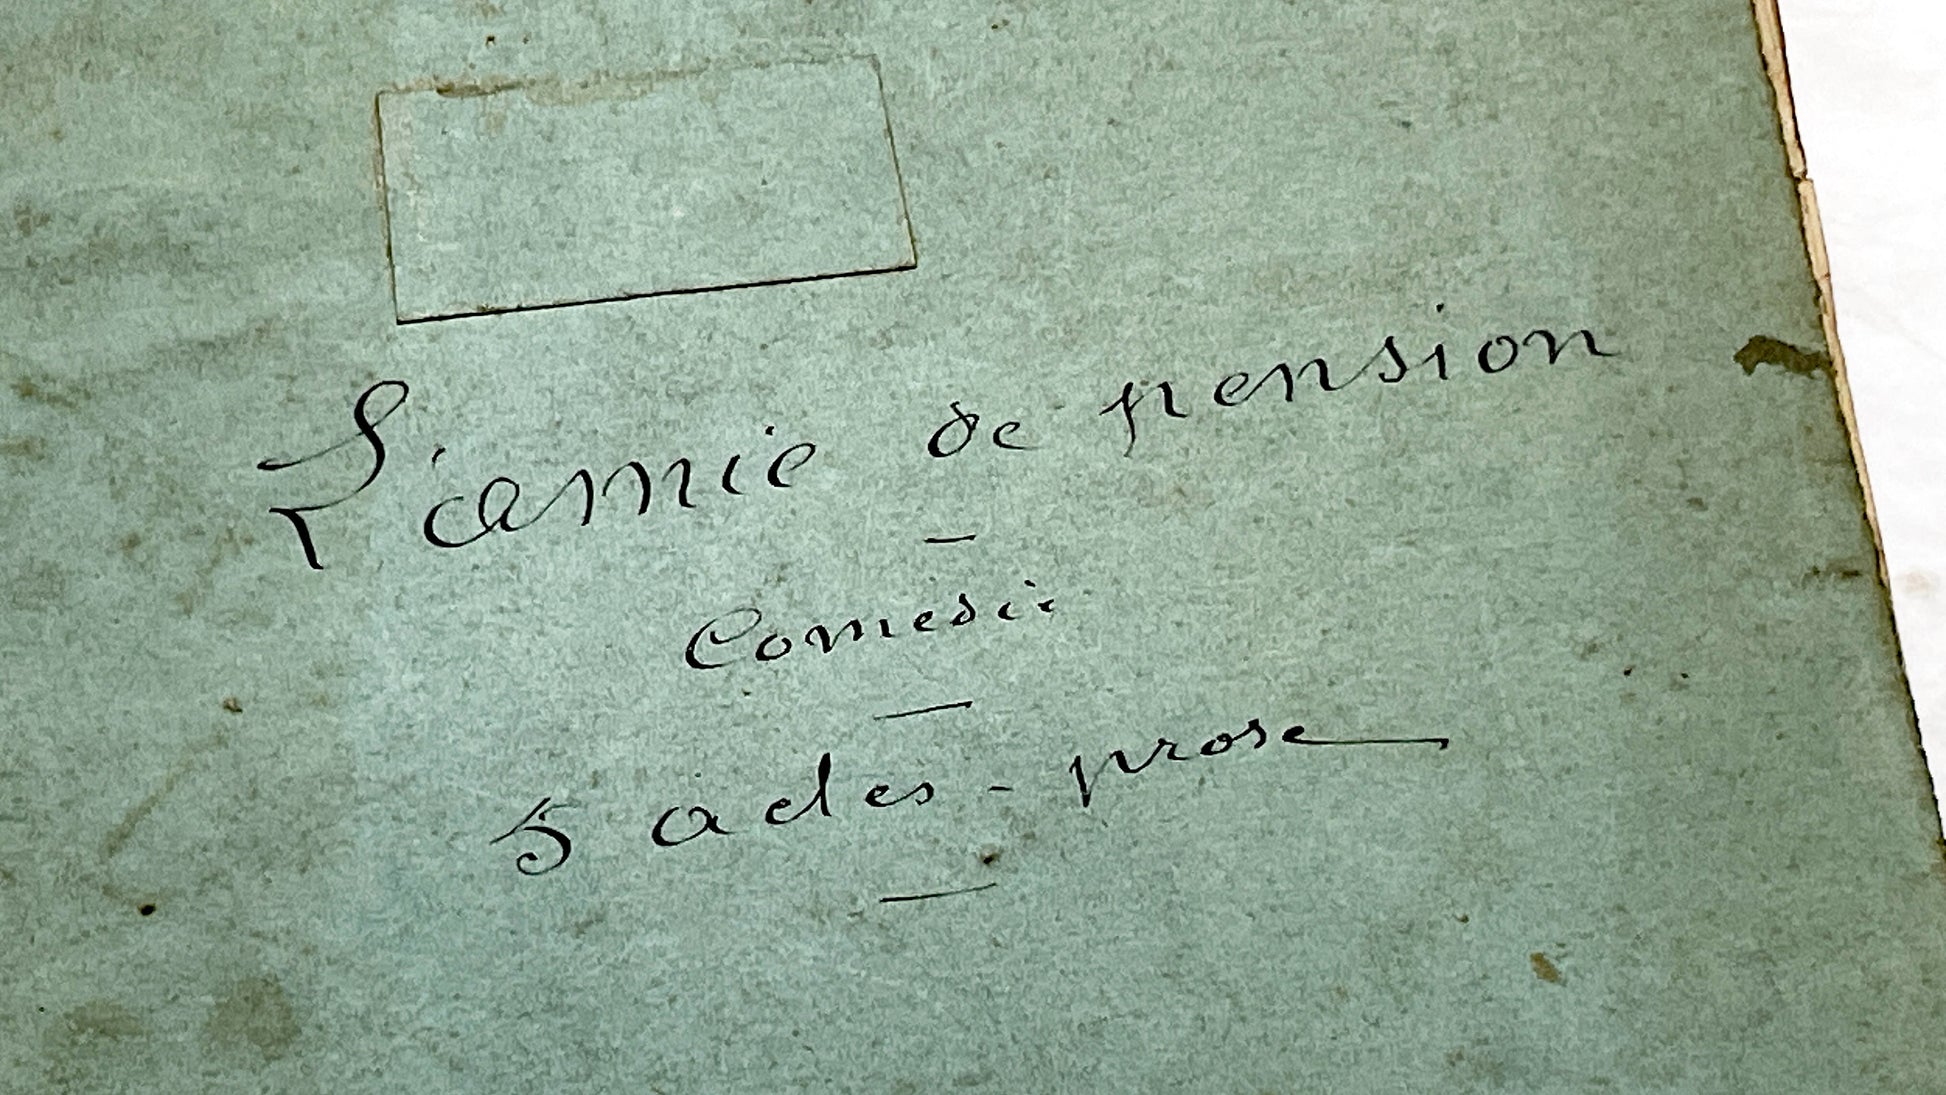 L'amie de pension
—
Comédie
—
5 actes - prose
—